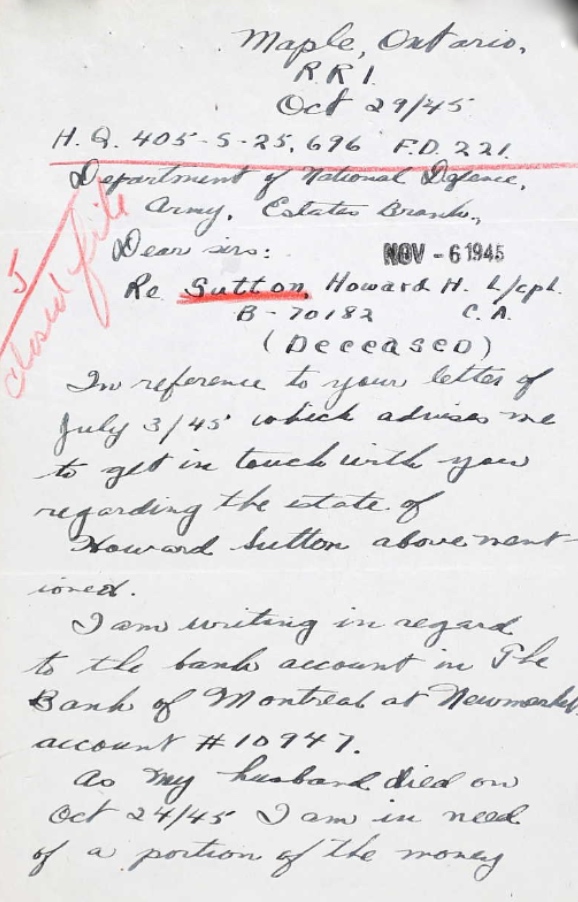 Maple, Ontario,
R.R 1.
Oct 29/45
H. Q. 405-S-25,696 F.D. 221.
Department of National Defence,
Army, Estates Branch,
Dear sirs:
NOV - 6 1945
Re Sutton, Howard H. L/cpl.
B-70182 C. A.
(Deceased)
closed file
In reference to your letter of
July 3/45 which advises me
to get in touch with you
regarding the estate of
Howard Sutton above ment-
ioned.
I am writing in regard
to the bank account in The
Bank of Montreal at Newmarket.
account #10947.
As my husband died on
Oct 24/45 I am in need
of a portion of the money